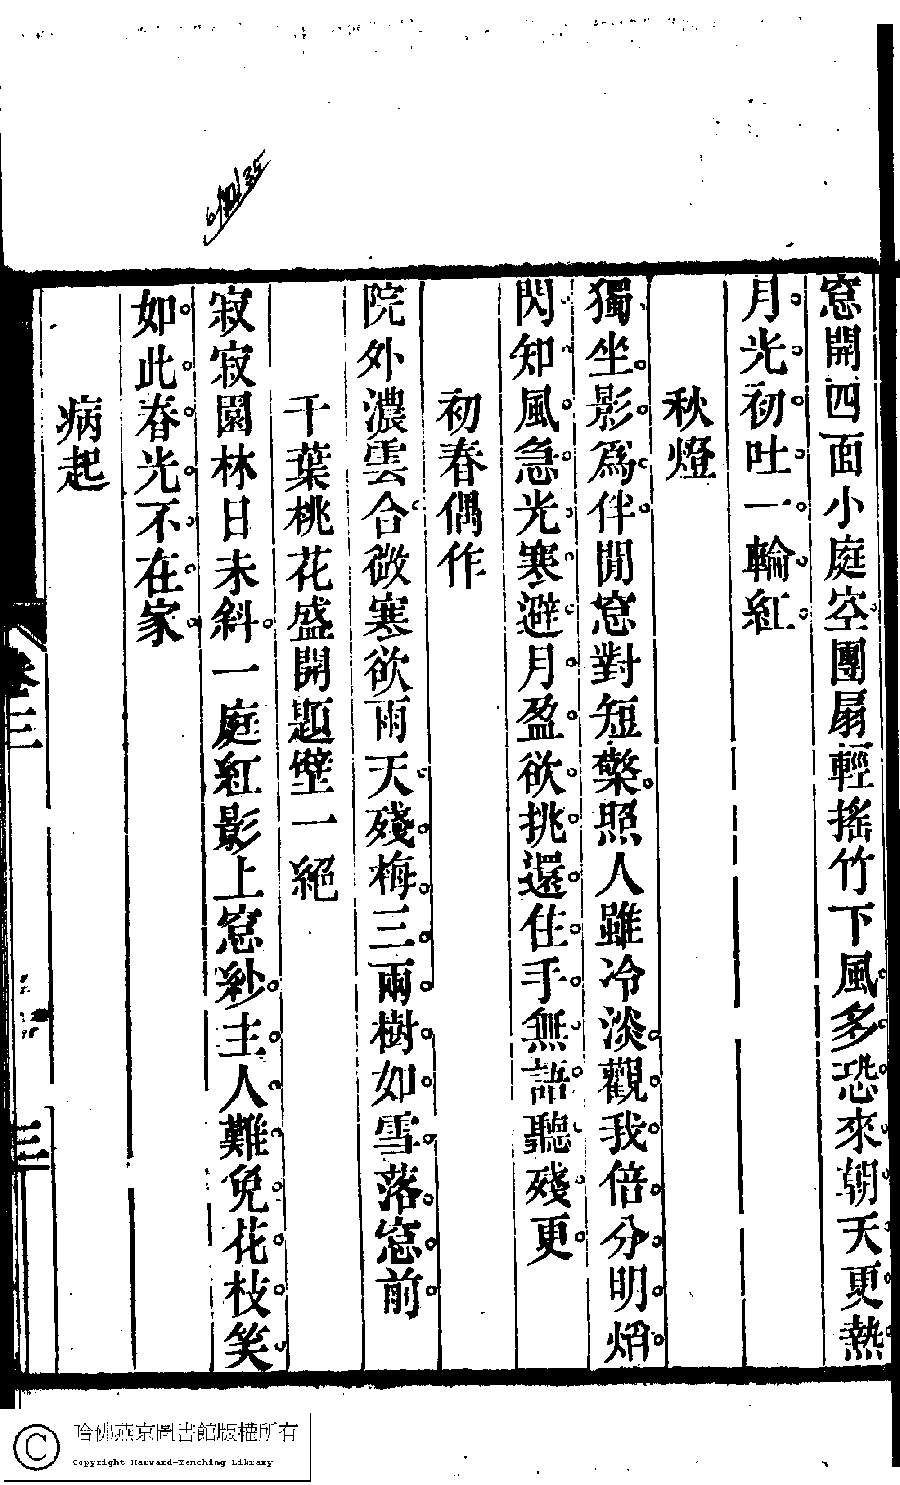 窓開四面小庭空團扇輕搖竹下風多恐來朝天更熱
月光初吐一輪紅
秋燈
獨坐影爲伴閒窓對短檠照人雖冷淡觀我倍分明焰
閃知風急光寒避月盈欲挑還住手無語聽殘更
初春偶作
院外濃雲合微寒欲雨天殘梅三兩樹如雪落窓前
千葉桃花盛開題壁一絕
寂寂園林日未斜一庭紅影上窓紗主人難免花枝笑
如此春光不在家
病起
卷三
三
哈佛燕京圖書館版權所有
Copyright Harvard-Yenching Library